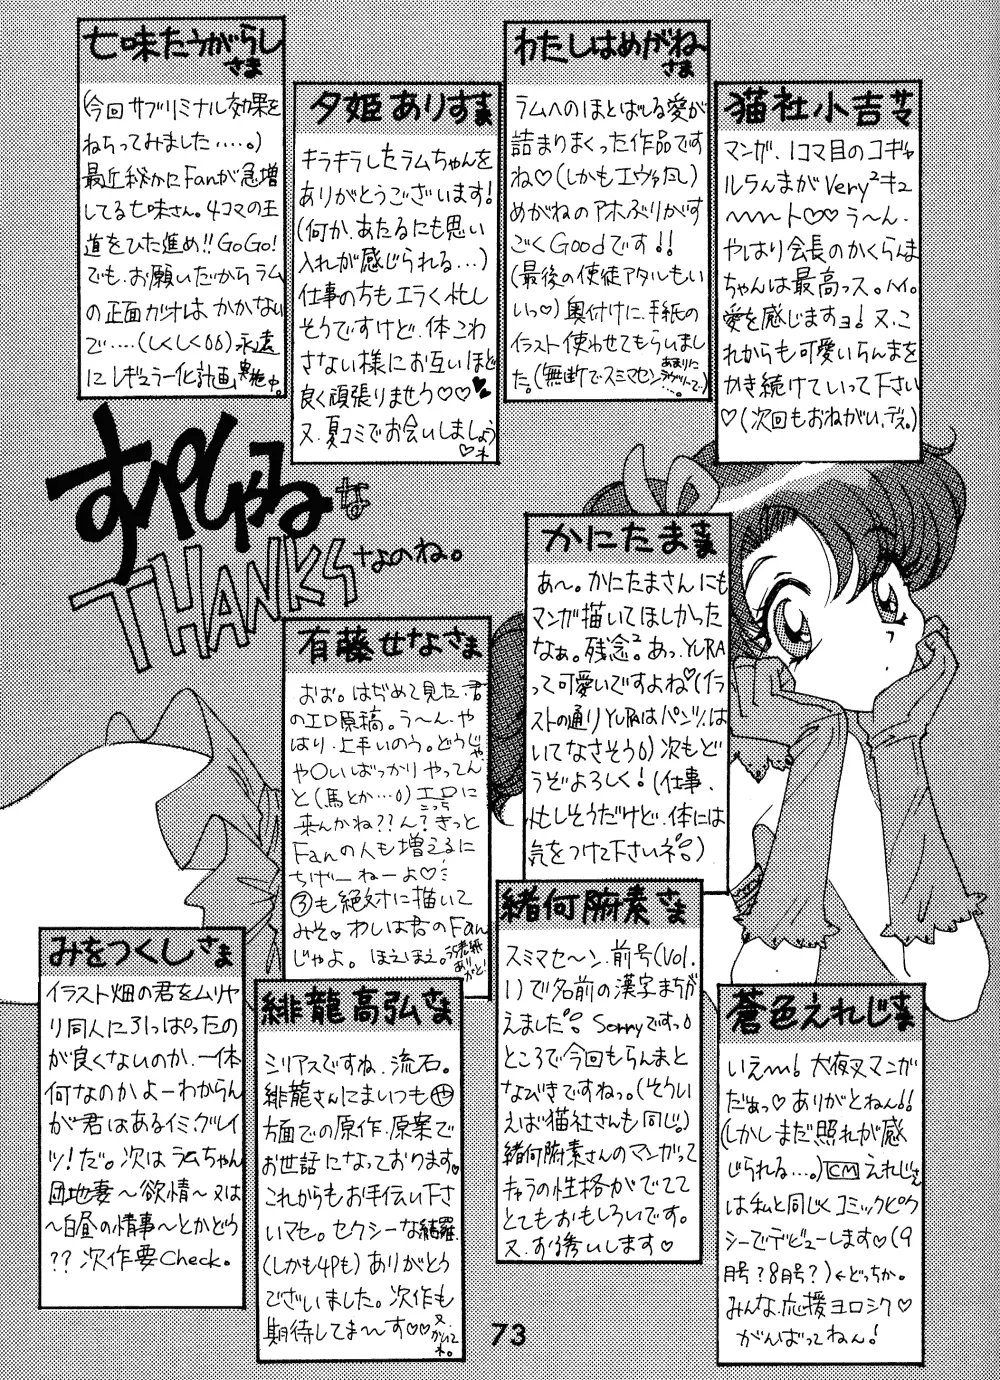 七味たうがらしさま
(今回サブリミナル効果を
ねらってみました‥‥。)
最近秘かにFanが急増
してる七味さん。4コマの王
道をひた進め!!GoGo!
でも、お願いだからラム
の正面ガオはかかないで
‥‥(しくしく)永遠
にレギュラー化計画実施中。
夕姫ありすさま
キラキラしたラムちゃんを
ありがとうございます!
(何か、あたるにも思い
入れが感じられる…)
仕事の方もエラく忙し
そうですけど、体こわ
さない様にお互いほど
良く頑張りませう♡♡♥
又、夏コミでお会いしましょうネ♡
わたしはめがねさま
ラムへのほとばしる愛が
詰まりまくった作品です
ね♡(しかもエヴァだし)
めがねのアホぶりがす
ごくGoodです!!
(最後の使徒アタルもい
いっ♡)奥付けに、手紙の
イラスト使わせてもらいまし
た。(無断でスミマセンあまりにラヴリーで…。)
猫社小吉サマ
マンガ、1コマ目のコギャ
ルらんまがVery²キュ
〜〜ート♡♡う〜ん、
やはり会長のかくらんま
ちゃんは最高っス。ハイ。
愛を感じますヨ!又、こ
れからも可愛いらんまを
かき続けていって下さい
♡(次回もおねがい、デス。)
すぺしゃるな
THANKSなのね。
かにたまさま
あ〜。かにたまさんにも
マンガ描いてほしかった
なぁ。残念²。あっ、YURA
って可愛いですよね♡(イラ
ストの通りYURAはパンツ、は
いてなさそう)次もど
うぞよろしく!(仕事、
忙しそうだけど、体には
気をつけて下さいネ。)
有藤せなさま
おお。はぢめて見た、君
のエロ原稿。う〜ん、や
はり、上手いのう。どうしゃ
や〇いばっかりやってん
と(馬とか…)エロに
こっち
来んかね??ん?きっと
Fanの人も増えるに
ちげーねーよ♡
③も絶対に描いて
みそ♡わしは君のFan
じゃよ。ほえほえ。うら表紙ありがと!
緒何腑素さま
スミマセ〜ン、前号(Vol.
1)で名前の漢字まちが
えました。Sorryですっ
ところで今回もらんまと
なびきですねっ。(そうい
えば猫社さんも同じ。)
緒何腑素さんのマンガって
キャラの性格がでてて
とてもおもしろいです。
又、お誘いします♡
みをつくしさま
イラスト畑の君をムリヤ
リ同人に引っぱったの
が良くないのか、一体
何なのかよーわからん
が君はあるイミ、グレイ
ツ!だ。次はラムちゃん
団地妻〜欲情〜又は
〜白昼の情事〜とかどう
??次作要Check。
緋龍高弘さま
シリアスですね、流石。
緋龍さんにまいつも
方面での原作、原案で
お世話になっております。
これからもお手伝い下さ
いマセ。セクシーな綺羅
(しかも4Pも)ありがとう
ございました。次作も
期待してま〜す♡♡又、かいてね。
蒼色えれじさま
いえ〜〜!犬夜叉マンガ
だぁっ♡ありがとねん!!
(しかしまだ照れが感
じられる…。)CMえれじぃ
は私と同じくコミックピク
シーでデビューします♡(9
月号?8月号?)←どっちか。
みんな、応援ヨロシク♡
がんばってねん!
73